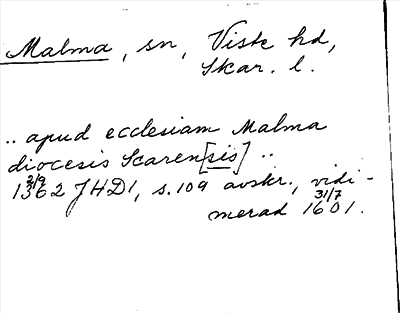 Malma, sn, Viste hd,
Skar. l.
.. apud ecclesiam Malma
diocesis Scaren[sis] ..
1362 2/9 JHD1, s. 109 avskr., vidi-
merad 31/7 1601.